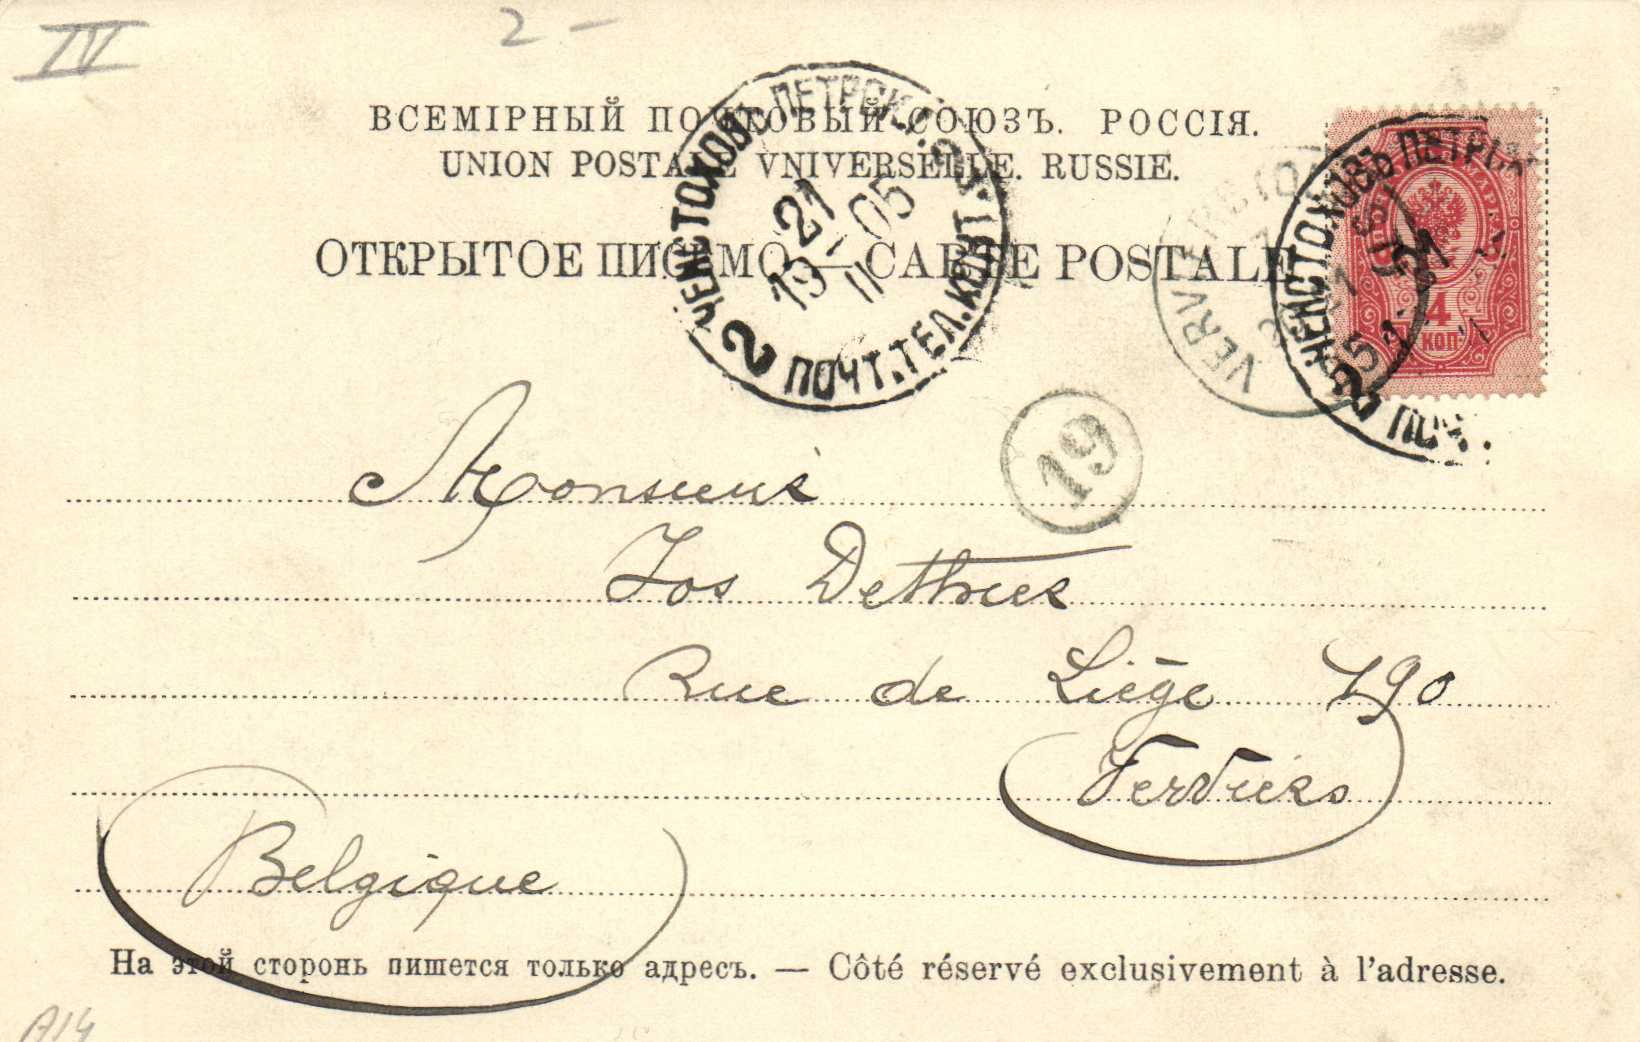 IV
2-
ВСЕМІРНЫЙ ПОЧТОВЫЙ СОЮЗЪ. РОССІЯ.
UNION POSTALE VNIVERSELLE. RUSSIE.
ОТКРЫТОЕ ПИСЬМО — CARTE POSTALE
ЧЕНСТОХОВЪ ПЕТРОК. Г.
21
19 II 05
2 ПОЧТ.ТЕЛ.КОНТ. 2
VERVIERS
ЧЕНСТОХОВЪ ПЕТРОК
21
2 ПОЧ
МАРКА
4
КОП.
19
Monsieur
Jos Dethier
Rue de Liège 190
Verviers
Belgique
На этой сторонь пишется только адресъ. — Côté réservé exclusivement à l'adresse.
A14